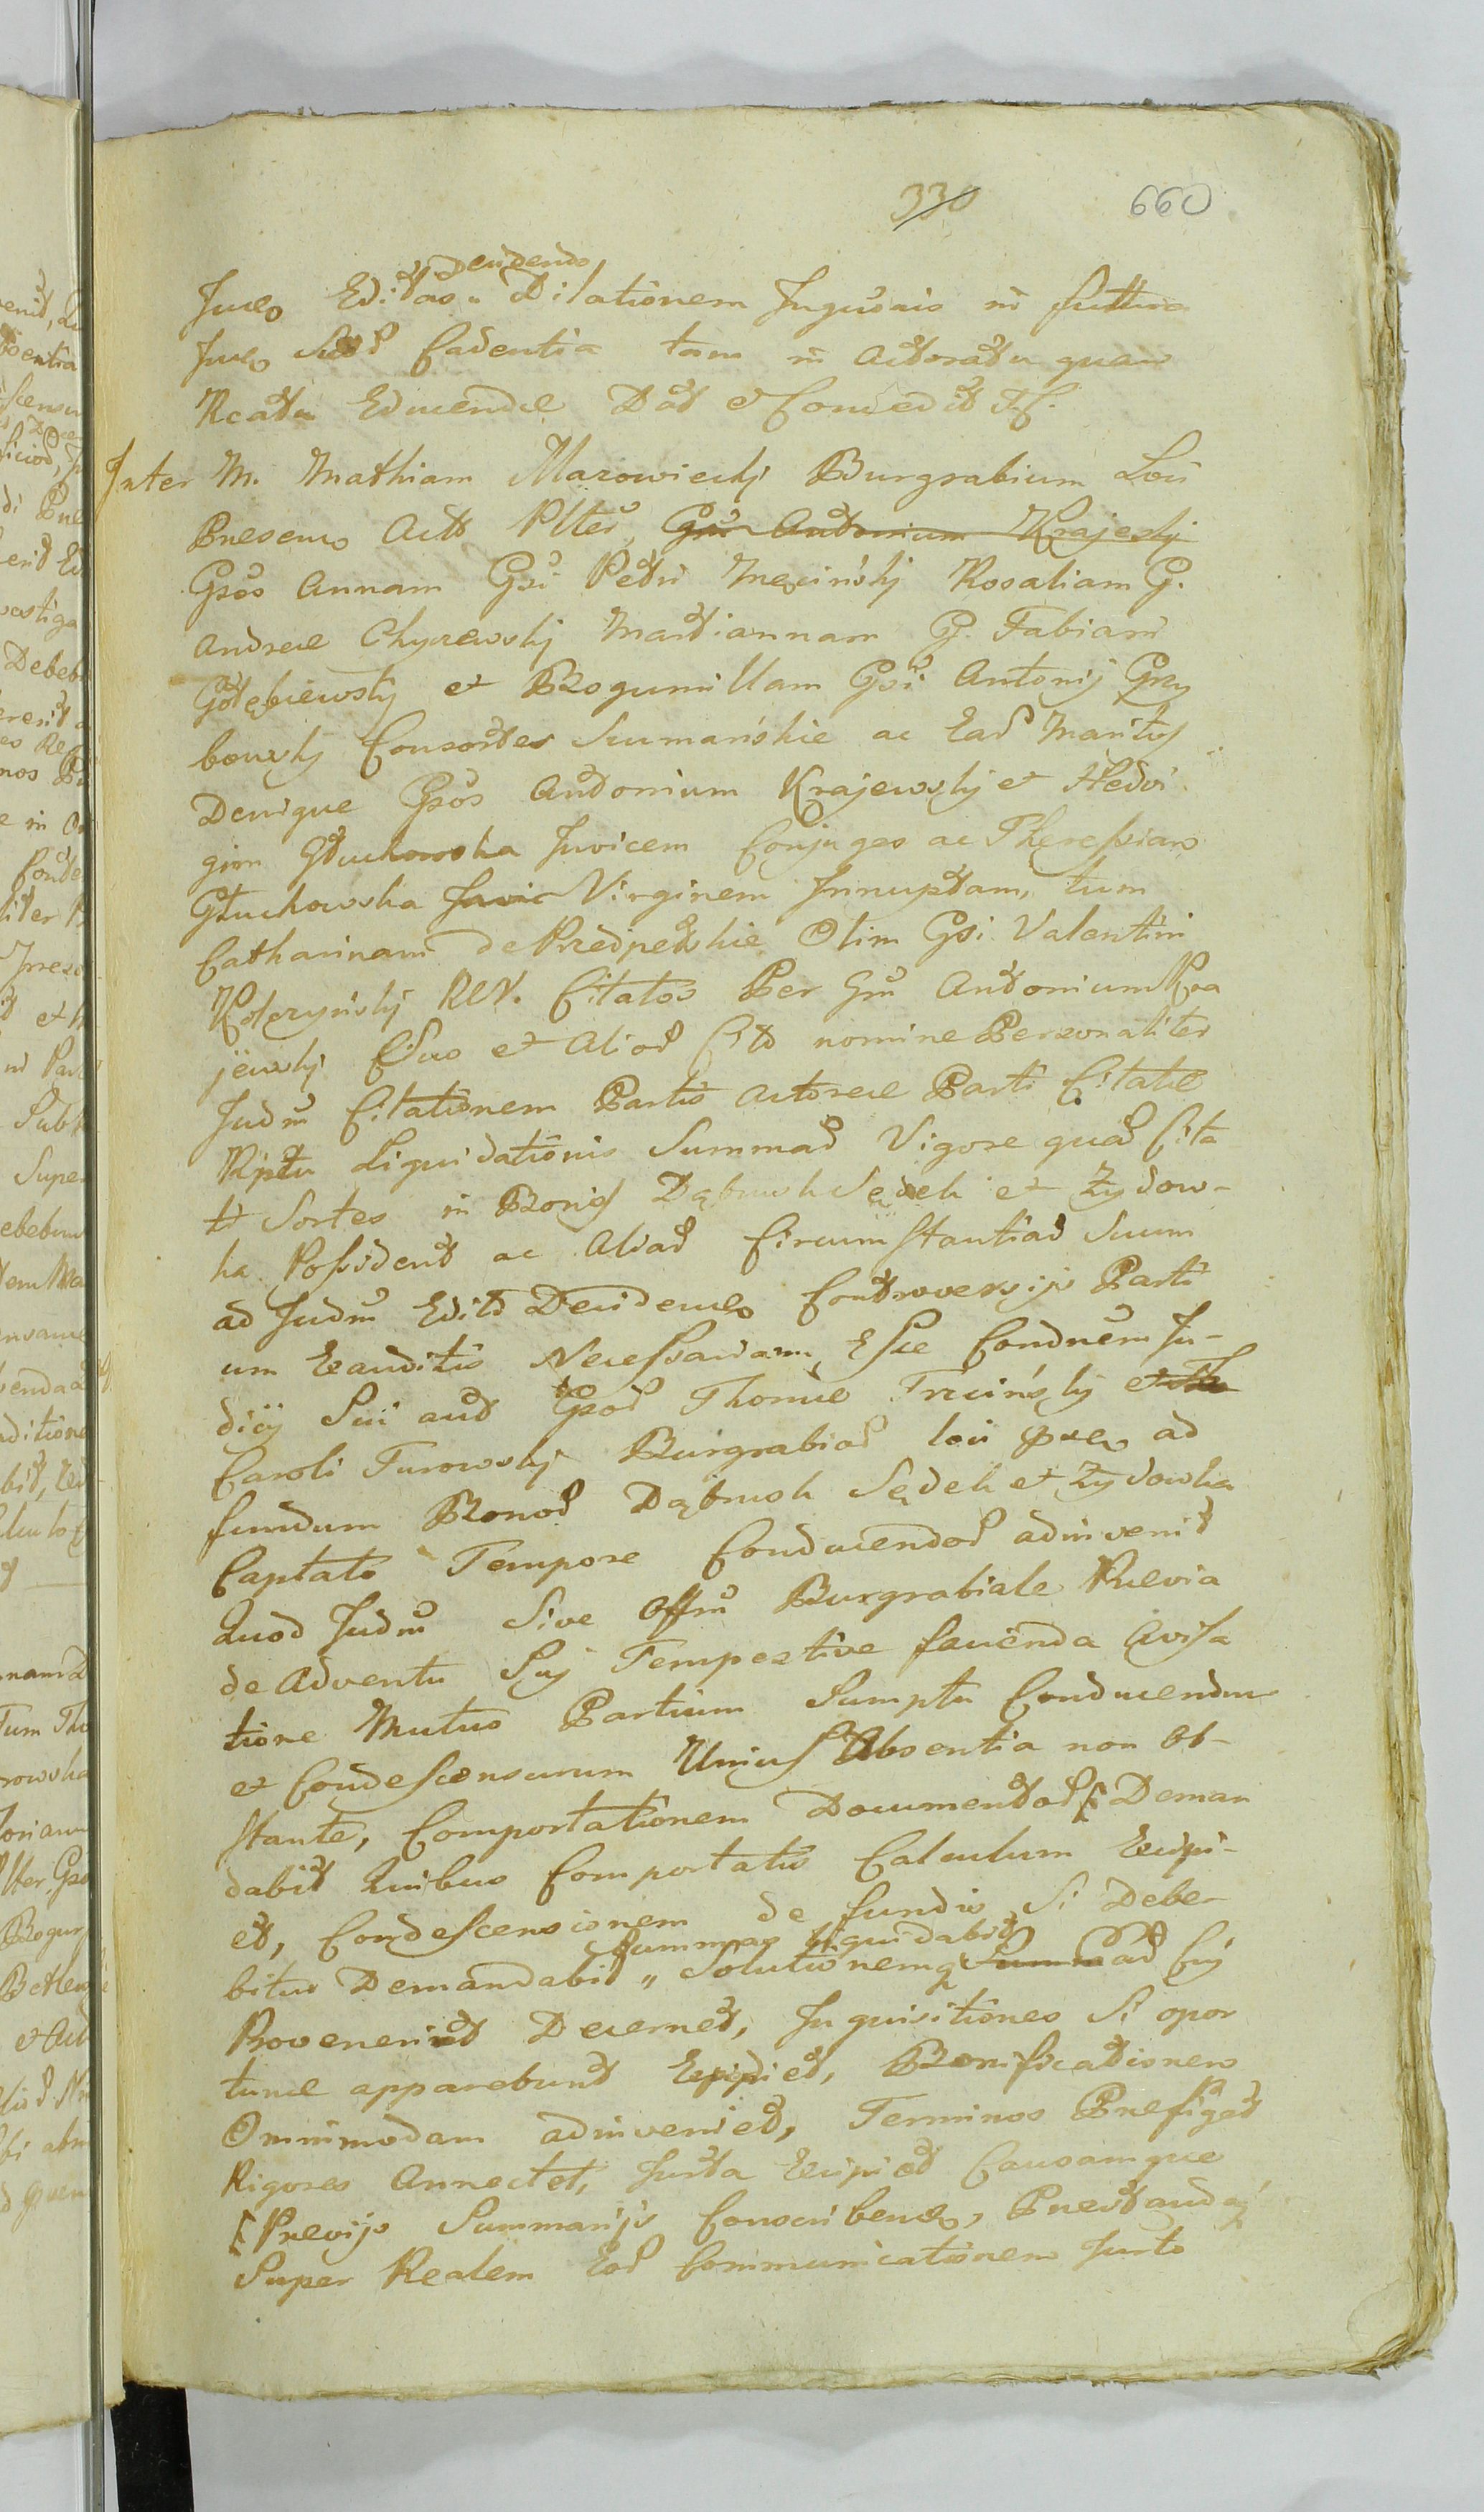 330 660
Decidendo
Juelo Editas " Dilationem Jnguisis in futuro
Juelo Sub Cadentia tam in Actoratu quam
Reatu Educendae Dat et Concedit
Inter M. Mathiam Marowieckj Burgrabium Loci
Presens Actt Plter, Gnu Antonium Krajeskj
Gsos Annam Gsi Petri Męcińskj Rosaliam G.
Andreae Chyzewskj Martiannam G. Fabiani
Gołębiewskj et Bogumillam Gsi Antonij Grzy
bowskj Consortes Szumańskie ac Ead Maritos
Denique Gsos Antonium Krajewskj et Hedvi
gim Głuchowska Jnvicem Conjuges ac Theressiam
Głuchowska Jnvic Virginem Jnnuptam, tum
Catharinam de Przedpełskie Olim Gsi Valentini
Kobrzyńskj Rltt. Citatos Per Gnu Antonium Kra
jewskj Suo et Aliod Ctt nomine Personaliter
Judm Citationem Partis Actoreae Parti Citatae
Rptu Liquidationis Summad Vigore quad Cita
tt Sortes in Bonis Dąbrowk Sędek et Zydow-
ka Possident ac Aliad Circumstantiad Suum
ad Judm Edito Decidendo Controversijs Parti
um Exauditis Necessariam Esse Condnem Ju-
dicij Sui aut Gsod Thomae Trzcińskj et Th
Caroli Turowskj Burgrabiod loci ad
fundum Bonod Dąbrwk Sędek et Zydowka
Captato Tempore Conducendod adinvenit
Quod Judm Sive Offm Burgrabiale Praevia
de Adventu Suj Tempestive facienda Avisa
tione Mutuo Partium Sumptu Conducendum
et Condescensurum Unius Absentia non Ob-
stante, Comportationem Documentod Deman
dabit Quibus Comportatis Calculum Excipi-
et, Condescensionem de fundis Si Debe-
Summas liquidabit
bitur Demandabit " Solutionemq Summad Cuj
Provenerint Decernet, Jnquisitiones Si opor
tunae apparebunt Expediet, Bonificationem
Omnimodam adinveniet, Terminos Praefiget
Rigores Annectet, Justa Excipiet Causamque
Praevijs Summarijs Conscribendo, Praestandaq
Super Realem Eod Communicationem Justo